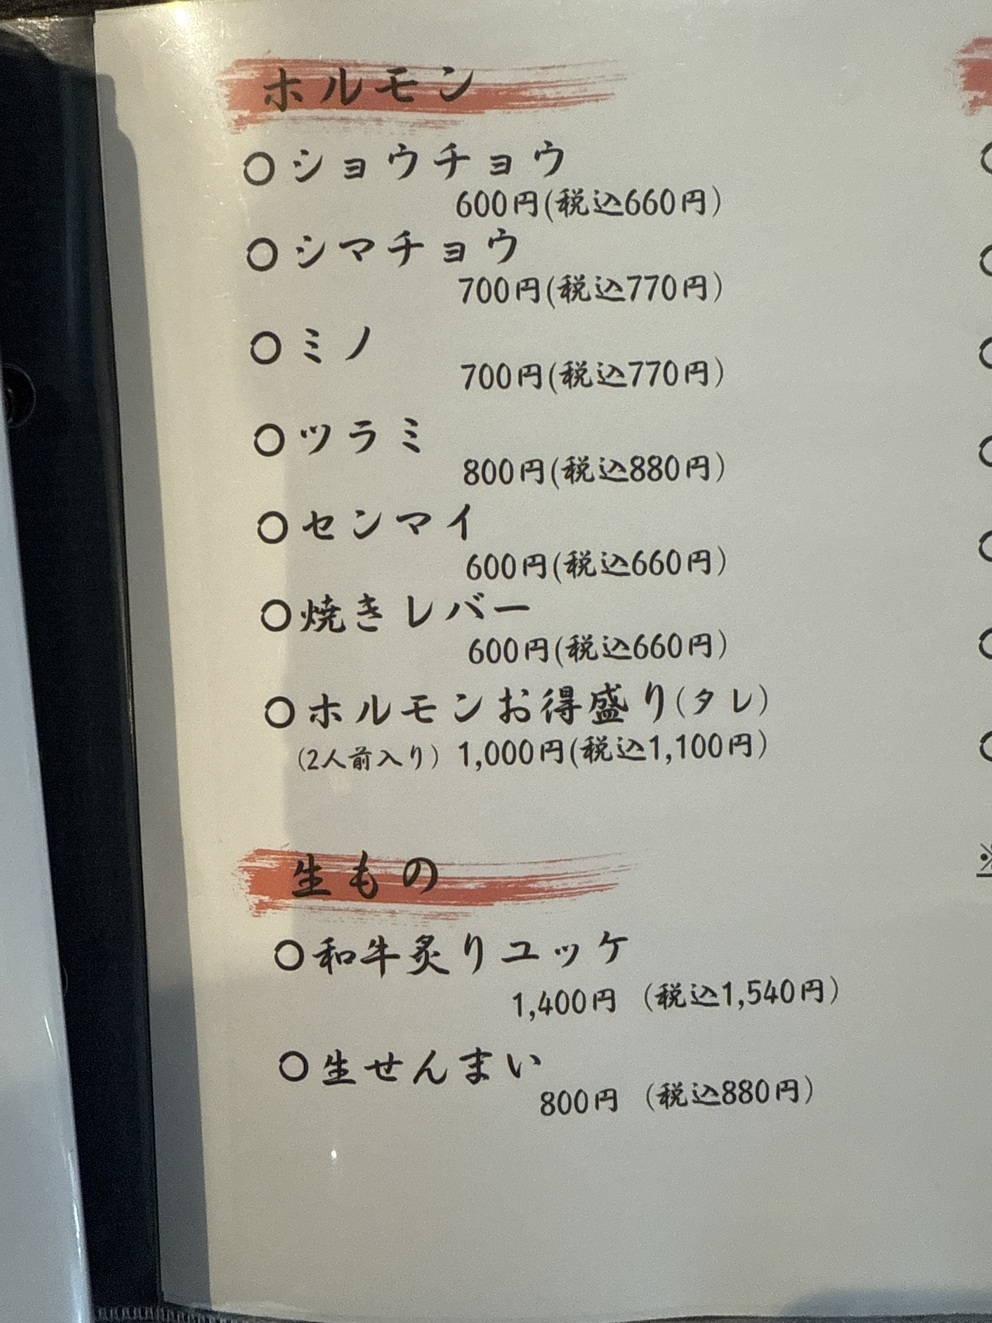 ホルモン
○ショウチョウ
600円(税込660円)
○シマチョウ
700円(税込770円)
○ミノ
700円(税込770円)
○ツラミ
800円(税込880円)
○センマイ
600円(税込660円)
○焼きレバー
600円(税込660円)
○ホルモンお得盛り(タレ)
(2人前入り) 1,000円(税込1,100円)
生もの
○和牛炙りユッケ
1,400円 (税込1,540円)
○生せんまい
800円 (税込880円)
※